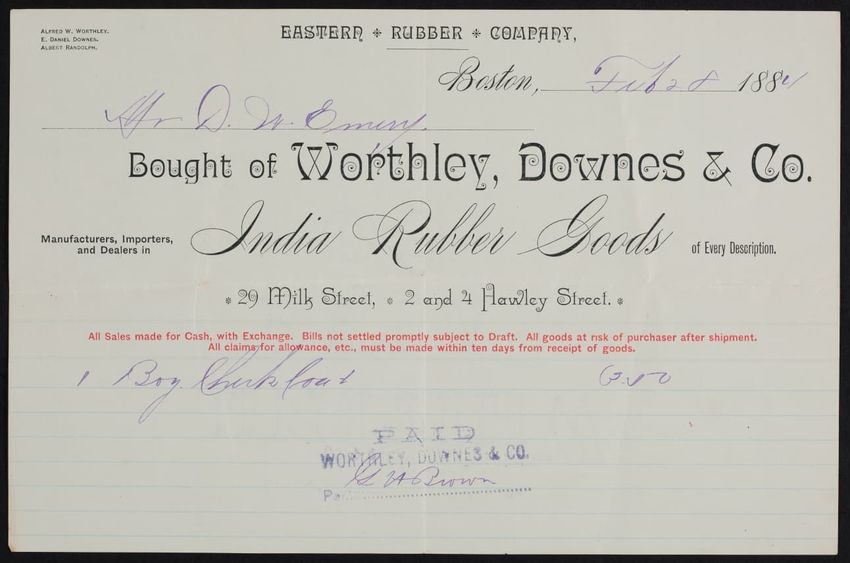 ALFRED W. WORTHLEY.
E. DANIEL DOWNES.
ALBERT RANDOLPH.
EASTERN * RUBBER * COMPANY,
Boston, Feb 28 1884
Mr D. W. Emery.
Bought of Worthley, Downes & Co.
Manufacturers, Importers,
and Dealers in
India Rubber Goods
of Every Description.
* 29 Milk Street, * 2 and 4 Hawley Street. *
All Sales made for Cash, with Exchange. Bills not settled promptly subject to Draft. All goods at risk of purchaser after shipment.
All claims for allowance, etc., must be made within ten days from receipt of goods.
1 Boy Coat
PAID
WORTHLEY, DOWNES & CO.
Brown